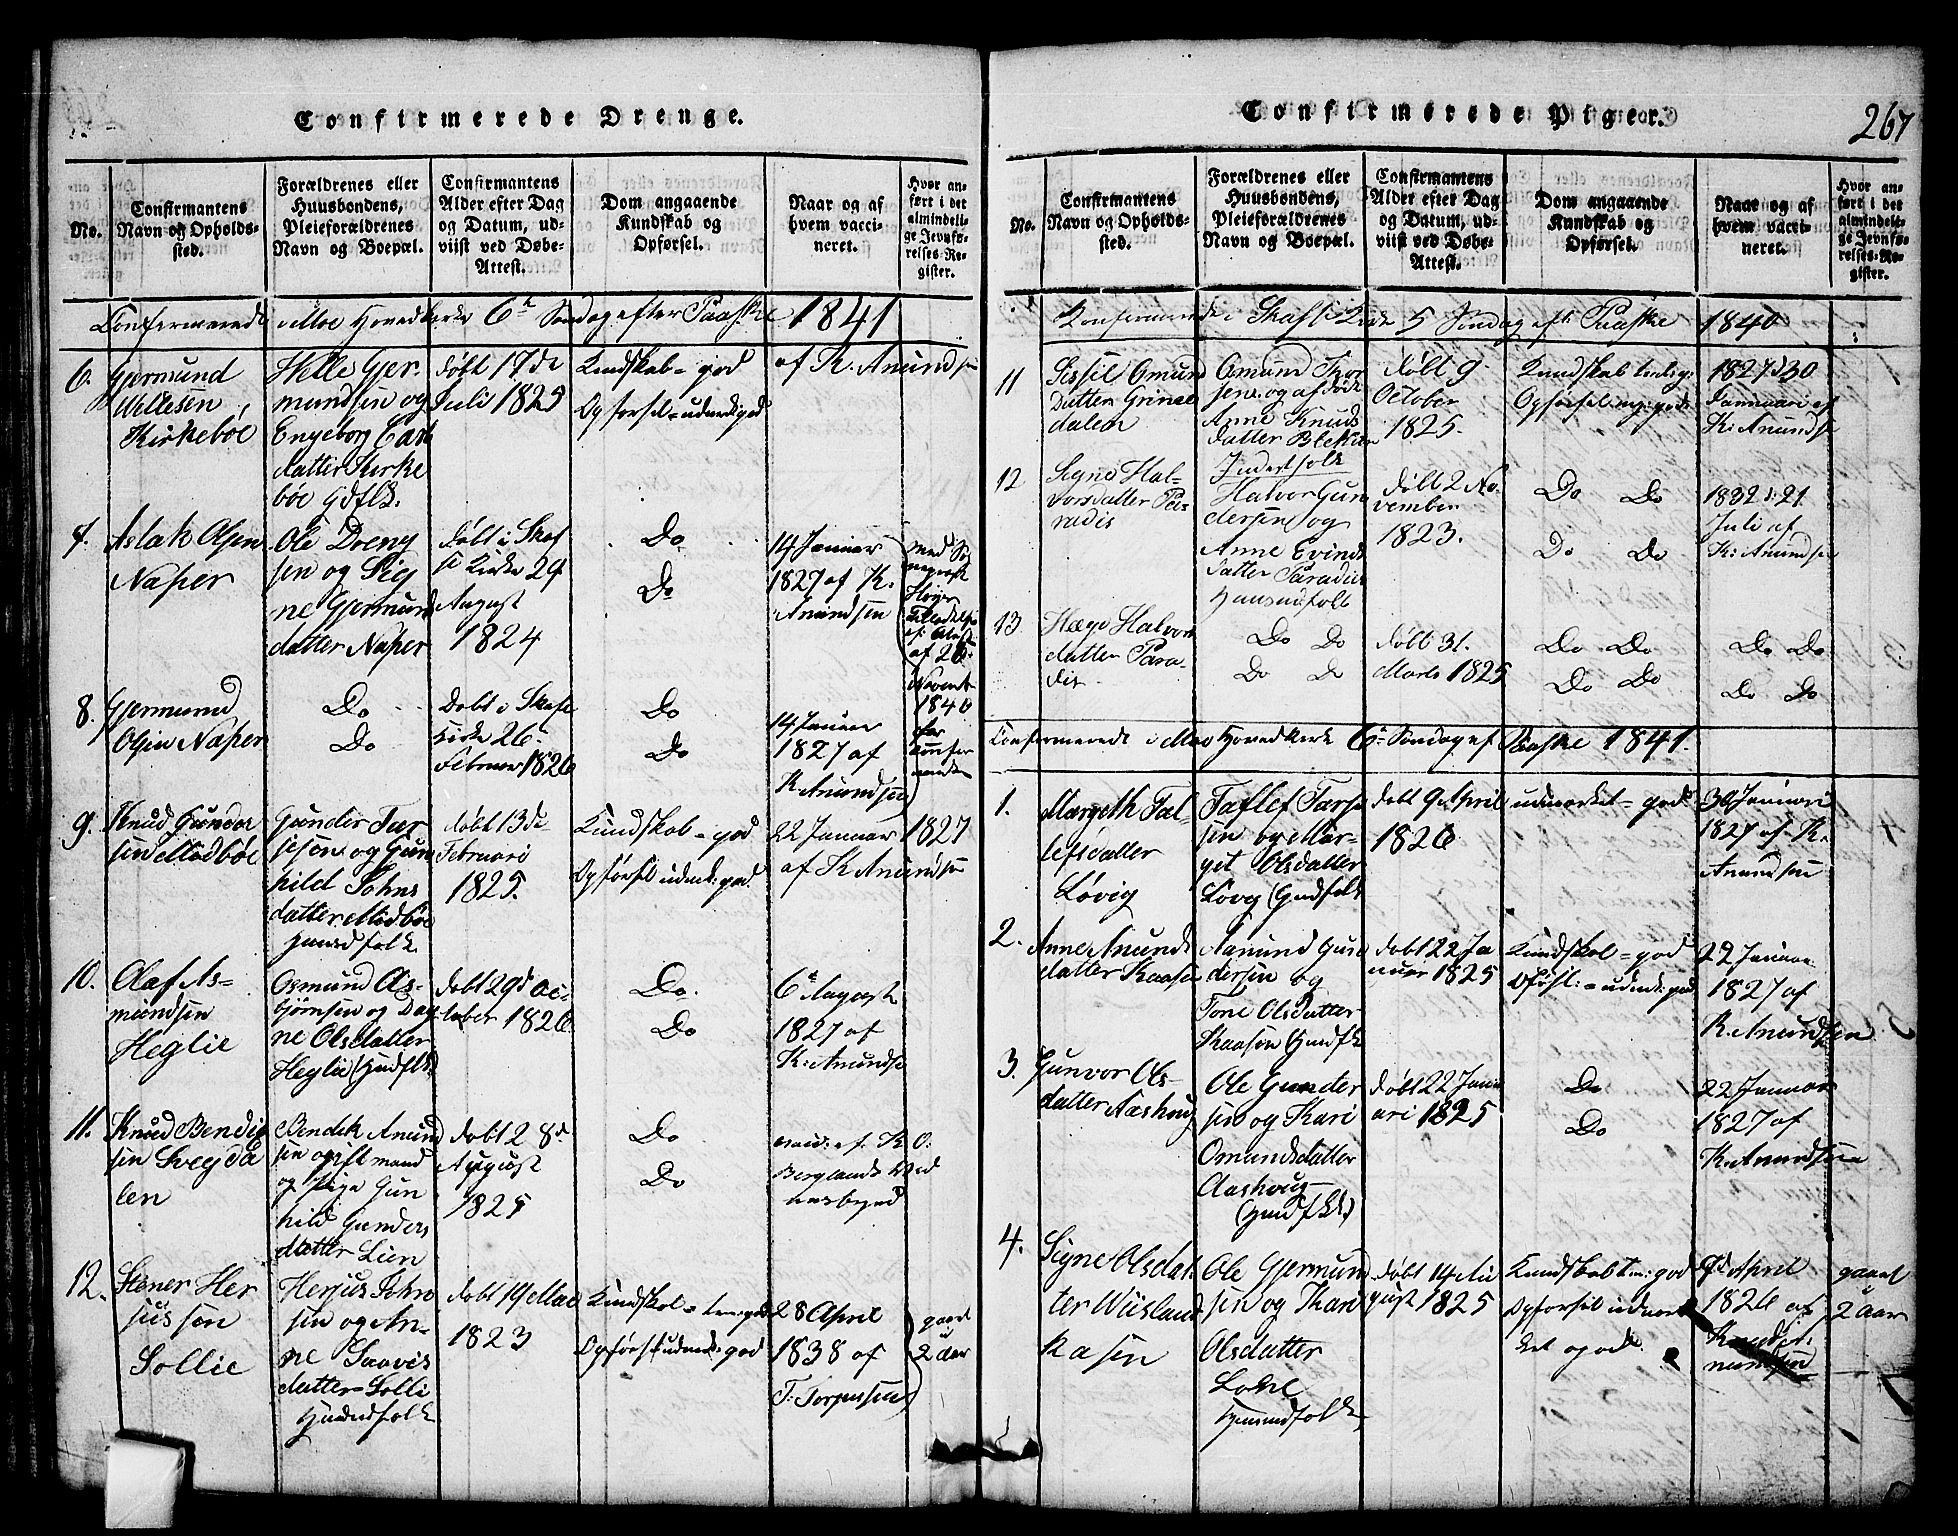 Confirmerede Drenge.
No.
Confirmantens
Navn og Opholds-
sted.
Forældrenes eller
Huusbondens,
Pleieforældrenes
Navn og Boepæl.
Confirmantens
Alder efter Dag
og Datum, ud-
viist ved Døbe-
Attest.
Dom angaaende
Kundskab og
Opførsel.
Naar og af
hvem vacci-
neret.
Hvor an-
ført i det
almindeli-
ge Jevnfø-
relses-Re-
gister.
Confermerede i Moe Hovedkirke 6te Søndag efter Paaske 1841
6.
Gjermund
Hellesen
Kirkebøe
Helle Gjer-
mundsen og
Engeborg
datter Kirke
bøe Gdflk.
døbt 17de
Juli 1825
Kundskab = god
Opførsel = udm: god
af K. Anundsen
7.
Aslak Olsen
Naper
Ole
sen og Sig
ne Gjermund
datter Naper
døbt i Skaf
se Kirke 24
August
1824
Do
Do
14 Januar
1827 af K.
Anundsen
af 26
Novemb
1840
8.
Gjermund
Olsen Naper
Do
Do
Døbt i Skafse
Kirke 26
Februar 1826
Do
Do
14 Januar
1827 af
K. Anundsen
9.
Knud Gunder
sen Midbøe
Gunder Tur
og Gun
hild Johns
datter Midbøe
Huusdfolk
døbt 13de
Februari
1825.
Kundskab = god
Opførsel udm: god
22 Januar 1827
af K Anundsen
10.
Olaf As-
mundsen
Heglie
Osmund As-
bjørnsen og Dag-
ne Olsdatter
Heglie (Gudflk)
døbt 29d oc-
tober 1826
Do.
Do
6te August
1827 af
K. Anundse
11.
Knud Bendix
sen
len
Bendik Anund
sen
og pige Gun
hild Gunders
datter Lien
døbt 28d
August
1825
Do
Do
af K O.
Berglands
12.
Stener Her
jusson
Sollie
Herjus John
sen og An-
ne
datter Solli
Huusndfolk
døbt 19 Mai
1823
Kundskab = tem: god
Opførsel udm: god
28 April
1838 af
T: Torgusen
gaaet
2 aar
Confirmerede Piger.
267
No.
Confirmantens
Navn og Opholds-
sted.
Forældrenes eller
Huusbondens,
Pleieforældrenes
Navn og Boepæl.
Confirmantens
Alder efter Dag
og Datum, ud-
viist ved Døbe-
Attest.
Dom angaaende
Kundskab og
Opførsel.
Naar og af
hvem vacci-
neret.
Hvor an-
ført i det
almindeli-
ge Jevnfø-
relses-Re-
gister.
Konfirmerede i Skafse Kirke 5 Søndag eft: Paaske 1840
11
Sissil Omund
Datter Grinne
dalen
Omund Thor
sen og
Anne Knuds
datter
Inderstfolk
døbt 9
October
1825.
1827 d 30
Januari af
K: Anundse
12
Signe Hal-
vorsdatter Pa-
radis
Halvor Gun
dersen og
Anne Evinds
datter Paradis
Huusndfolk
døbt 2 No-
vember
1823.
Do Do
Do Do
1832 d: 21
Juli af
K: Anundsen
13
Hæge Halvors
datter Para-
dis
Do Do
Do Do
døbt 31.
Marts 1825
Do Do
Do Do
Do Do
Do Do
Confermerede i Moe Hovedkirke 6te Søndag ef. Paaske 1841.
1.
Margith Tal-
lefsdatter
Løvig
Taflef Tarje
sen og Mar-
git Olsdatter
Løvig (Gudfolk
døbt 9 April
1826
udmærket = god
30 Januari
1827 af K.
Anundsen
2.
Anne Anunds
datter Kaasen
Aanund Gun
dersen og
Tone Olsdatter
Kaasen Gudflk
døbt 22 Ja
nuar 1825
Kundskab = god
Opførsl: = udm: god
22 Januar
1827 af
K. Anundsen
3.
Gunvor Ols-
datter Aashoug
Ole Gunder
sen og Kari
Omundsdatter
Aashoug
(Gudfolk)
døbt 22 Janu
ari 1825
Do
Do
22 Januar
1827 af
K. Anundsen
4.
Signe Olsdat
ter Wiisland
kasen
Ole Gjermund
sen og Kari
Olsdatter
Huusndfolk
døbt 14 Au
gust 1825
Kundskab tm: god
Opførsel udmær
ket og god
9d April
1826 af
Knud A
nundsen
gaaet
2 aar